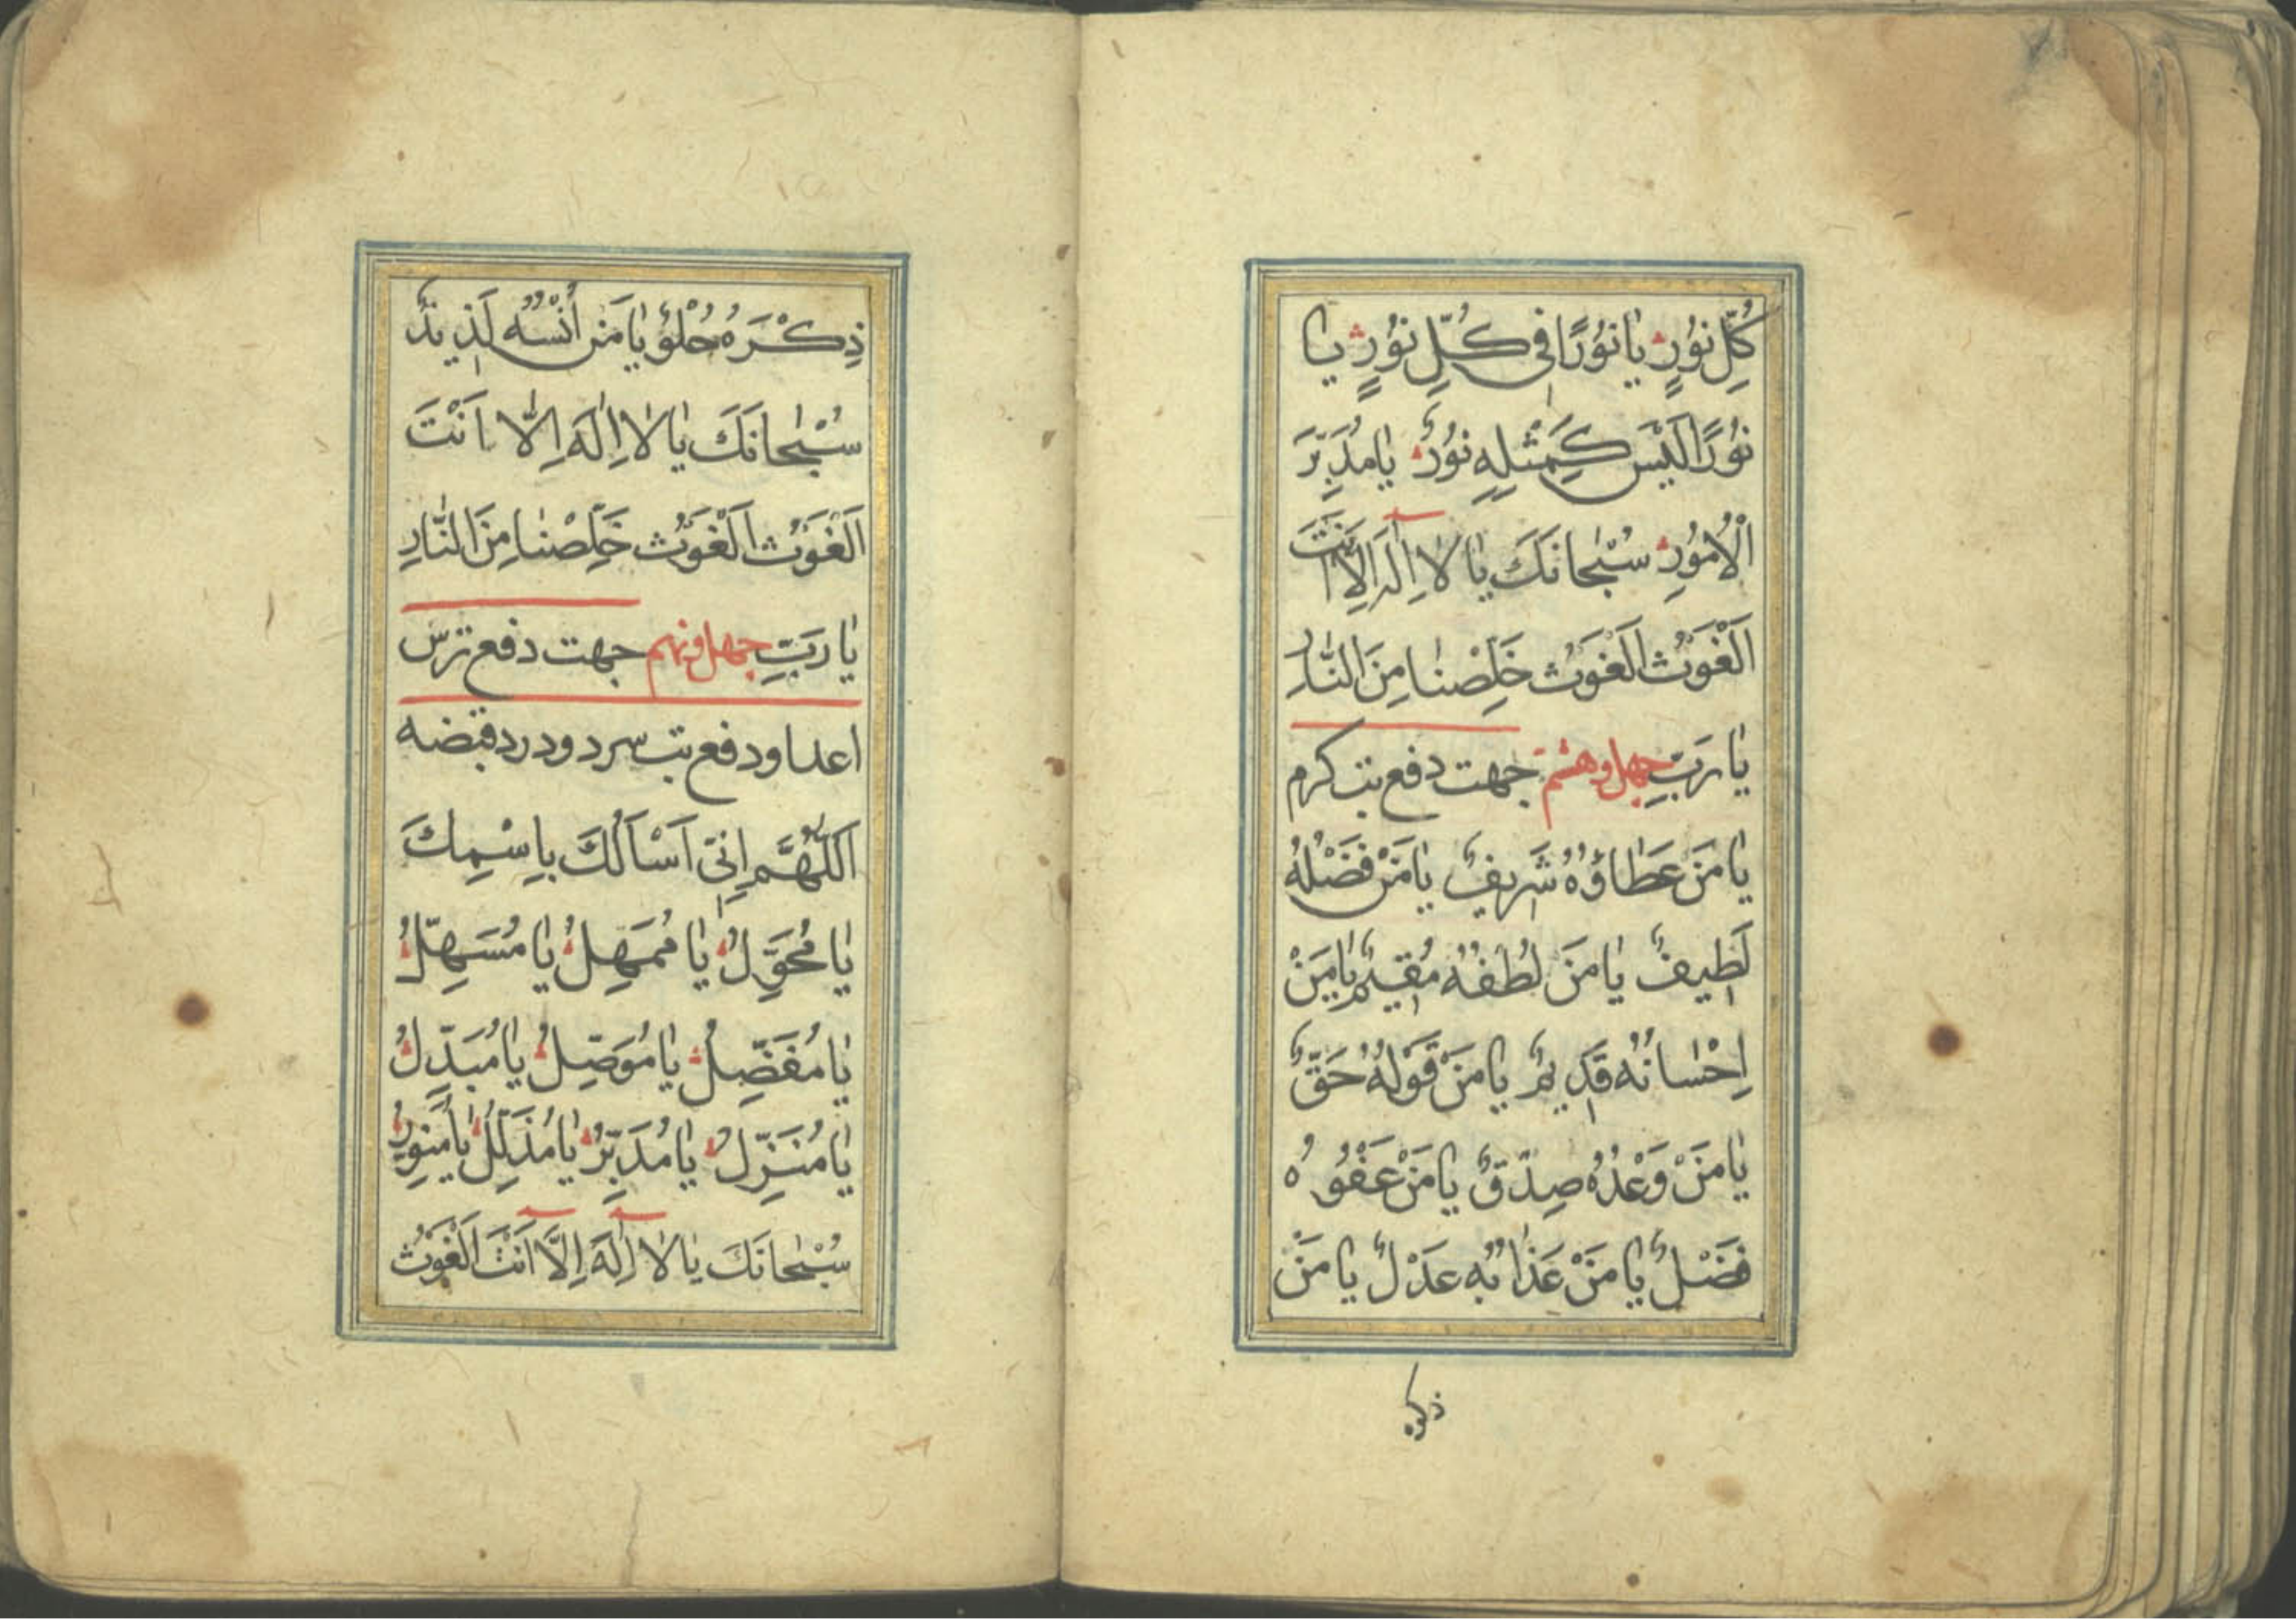 كُلِّ نُورٍ يَا نُورًا فِي كُلِّ نُورٍ يَا
نُورًا لَيْسَ كَمِثْلِهِ نُورٌ يَا مُدَبِّرَ
الْأُمُورِ سُبْحَانَكَ يَا لَا اِلَهَ اِلَّا اَنْتَ
اَلْغَوْثَ الْغَوْثَ خَلِّصْنَا مِنَ النَّارِ
يَا رَبِّ چهل و هشتم جهت دفع تب كرم
يَا مَنْ عَطَاؤُهُ شَرِيفٌ يَا مَنْ فَضْلُهُ
لَطِيفٌ يَا مَنْ لُطْفُهُ مُقِيمٌ يَا مَنْ
اِحْسَانُهُ قَدِيمٌ يَا مَنْ قَوْلُهُ حَقٌّ
يَا مَنْ وَعْدُهُ صِدْقٌ يَا مَنْ عَفْوُهُ
فَضْلٌ يَا مَنْ عَذَابُهُ عَدْلٌ يَا مَنْ
ذكره
ذِكْرَهُ حُلْوٌ يَا مَنْ أُنْسُهُ لَذِيذٌ
سُبْحَانَكَ يَا لَا اِلَهَ اِلَّا اَنْتَ
اَلْغَوْثَ اَلْغَوْثَ خَلِّصْنَا مِنَ النَّارِ
يَا رَبِّ چهل و نهم جهت دفع ترس
اعدا و دفع تب سرد و درد قبضه
اَللّٰهُمَّ اِنِّي اَسْاَلُكَ بِاِسْمِكَ
يَا مُحَوِّلُ يَا مُمَهِّلُ يَا مُسَهِّلُ
يَا مُفَضِّلُ يَا مُوَصِّلُ يَا مُبَدِّلُ
يَا مُنَزِّلُ يَا مُدَبِّرُ يَا مُذَلِّلُ يَا مُنَوِّرُ
سُبْحَانَكَ يَا لَا اِلَهَ اِلَّا اَنْتَ الْغَوْثَ